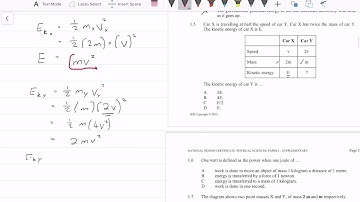 Text Mode
Lasso Select
Insert Space
E_kx = 1/2 m_x v_x²
= 1/2 (2m) × (v)²
E = mv²
E_ky = 1/2 m_y v_y²
= 1/2 (m)(2v)²
= 1/2 m(4v²)
= 2mv²
E_ky
as it goes up.
1.5 Car X is travelling at half the speed of car Y. Car X has twice the mass of car Y.
The kinetic energy of car X is E.
Car X Car Y
Speed v 2v
Mass 2m m
Kinetic energy E ?
The kinetic energy of car Y is…
A 2E.
B 4E.
C E/2
D E.
NATIONAL SENIOR CERTIFICATE: PHYSICAL SCIENCES: PAPER I – SUPPLEMENTARY
1.6 One watt is defined as the power when one joule of …
A work is done to move an object of mass 1 kilogram a distance of 1 metre.
B energy is transferred by a force of 1 newton.
C energy is transferred to a mass of 1 kilogram.
D work is done in one second.
1.7 The diagram shows two point masses X and Y, of mass 2 m and m respectively